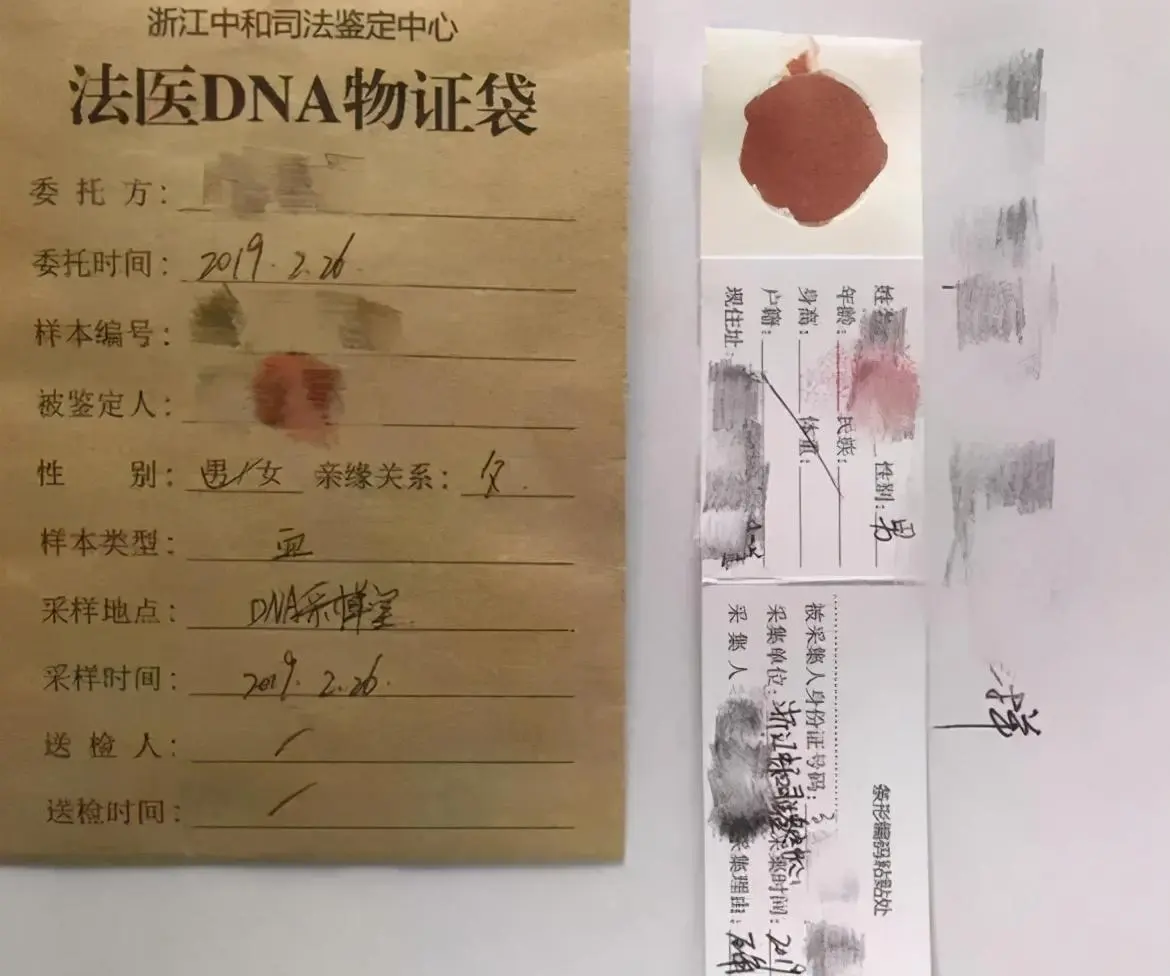 浙江中和司法鉴定中心
法医DNA物证袋
委托方：
委托时间：2019.2.26.
样本编号：
被鉴定人：
性别：男/女 亲缘关系：父.
样本类型：血
采样地点：DNA采样室
采样时间：2019.2.26.
送检人：/
送检时间：/
姓名 性别：男
年龄： 民族：
身高： 体重：
户籍：
现住址：
条形编码粘贴处
被采集人身份证号码：3
采集单位：浙江中和司法鉴定中心 采集时间：2019
采集人： 采集理由：